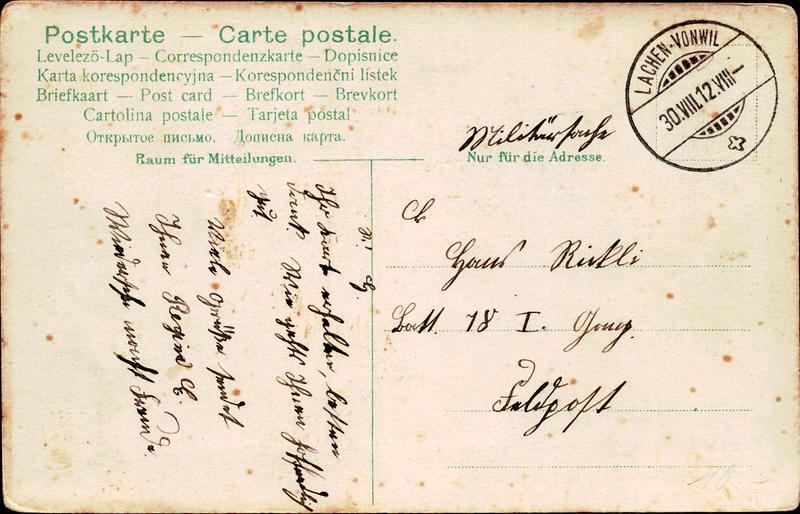 Postkarte — Carte postale.
Levelező-Lap — Correspondenzkarte — Dopisnice
Karta korespondencyjna — Korespondenční lístek
Briefkaart — Post card — Brefkort — Brevkort
Cartolina postale — Tarjeta postal
Открытое письмо. Дописна карта.
Raum für Mitteilungen.
LACHEN-VONWIL
30.VIII.12.VIII—
Militärsache
Nur für die Adresse.
Hans Rickli
Batt. 18 I. Comp.
Feldpost
Ihre Karte erhalten, besten
Dank. Wie geht's Ihnen hoffentlich
gut
Viele Grüße sendet
Ihnen
Wiedersehn macht Freude.